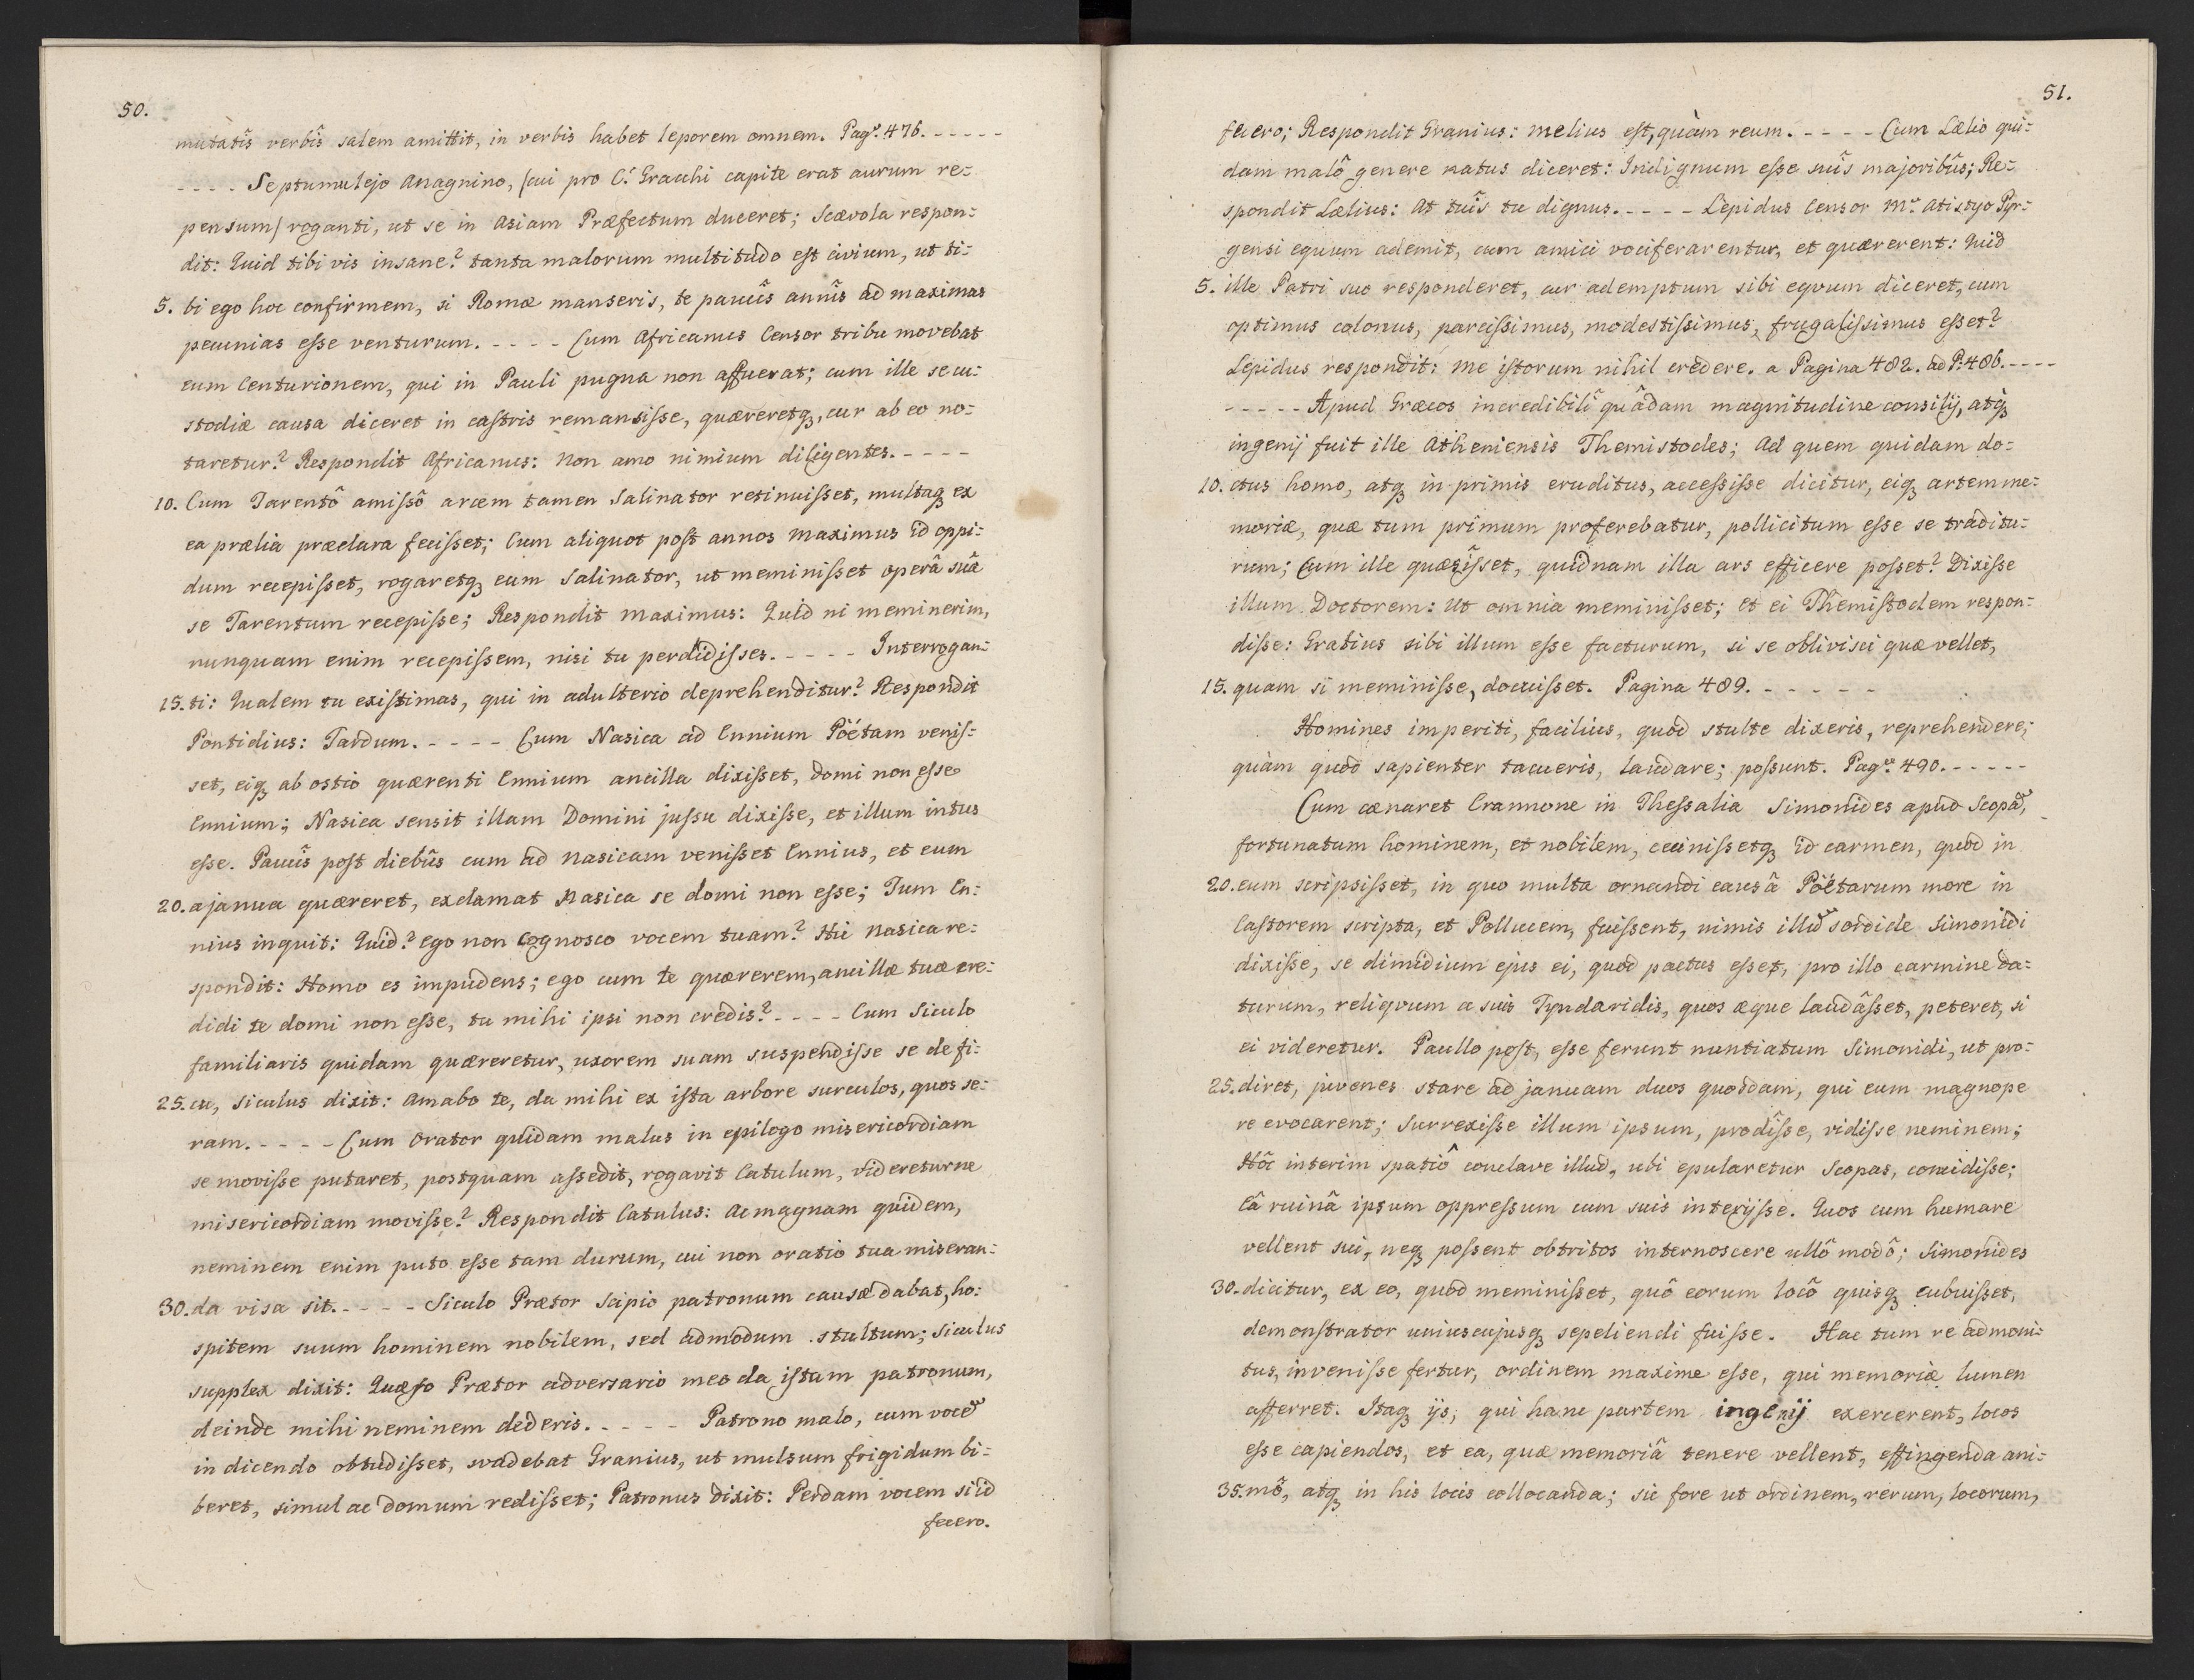 50.
mutatîs verbîs salem amittit, in verbis habet leporem omnem. Pag.ª 476. - - - - -
- - - - Septumulejo Anagnino, (cui pro C. Gracchi capite erat aurum re-
pensum) roganti, ut se in Asiam Præfectum duceret; Scævola respon-
dit: Quid tibi vis insane? tanta malorum multitudo est civium, ut ti-
5. bi ego hoc confirmem, si Romæ manseris, te paucîs annîs ad maximas
pecunias esse venturum. - - - - Cum Africanus Censor tribu movebat
eum Centurionem, qui in Pauli pugna non affuerat; cum ille se cu-
stodiæ causa diceret in castris remansisse, quæreretq, cur ab eo no-
taretur? Respondit Africanus: Non amo nimium diligentes. - - - -
10. Cum Tarentô amissô arcem tamen Salinator retinuisset, multaq ex
ea prælia præclara fecisset; Cum aliquot post annos Maximus id oppi-
dum recepisset, rogaretq eum Salinator, ut meminisset operâ suâ
se Tarentum recepisse; Respondit Maximus: Quid ni meminerim,
nunquam enim recepissem, nisi tu perdidisses. - - - - Interrogan-
15. ti: Qualem tu existimas, qui in adulterio deprehenditur? Respondit
Pontidius: Tardum. - - - - Cum Nasica ad Ennium Pöétam venis-
set, eiq ab ostio quærenti Ennium ancilla dixisset, domi non esse
Ennium; Nasica sensit illam Domini jussu dixisse, et illum intus
esse. Paucîs post diebûs cum ad Nasicam venisset Ennius, et eum
20. a janua quæreret, exclamat Nasica se domi non esse; Tum En-
nius inquit: Quid? ego non cognosco vocem tuam? Hic Nasica re-
spondit: Homo es impudens; ego cum te quærerem, ancillæ tuæ cre-
didi te domi non esse, tu mihi ipsi non credis? - - - - Cum Siculo
familiaris quidam quæreretur, uxorem suam suspendisse se de fi-
25. cu, Siculus dixit: Amabo te, da mihi ex ista arbore surculos, quos se-
ram. - - - - Cum Orator quidam malus in epilogo misericordiam
se movisse putaret, postquam assedit, rogavit Catulum, videreturne
misericordiam movisse? Respondit Catulus: Ac magnam quidem,
neminem enim puto esse tam durum, cui non oratio tua miseran-
30. da visa sit. - - - - Siculo Prætor Scipio patronum causæ dabat, ho-
spitem suum hominem nobilem, sed admodum stultum; Siculus
supplex dixit: Quæso Prætor adversario meo da istum patronum,
deinde mihi neminem dederis. - - - - Patrono malo, cum você
in dicendo obtudisset, svadebat Granius, ut mulsum frigidum bi-
beret, simul ac domum redisset; Patronus dixit: Perdam vocem si id
fecero.
51.
fecero; Respondit Granius: Melius est, quàm reum. - - - - Cum Lælio qui-
dam malô genere natus diceret: Indignum esse suîs majoribûs; Re-
spondit Lælius: At tuîs tu dignus. - - - - Lepidus Censor M. Atistyo Pyr-
gensi equum ademit, cum amici vociferarentur, et quærerent: Quid
5. ille Patri suo responderet, cur ademptum sibi eqvum diceret, cum
optimus colonus, parcissimus, modestissimus, frugalissimus esset?
Lepidus respondit: Me istorum nihil credere. a Pagina 482. ad P. 486. - - - -
- - - - - Apud Græcos incredibilî quâdam magnitudine consilij, atq
ingenij fuit ille Atheniensis Themistocles; Ad quem quidam do-
10. ctus homo, atq in primis eruditus, accessisse dicitur, eiq artem me-
moriæ, quæ tum primum proferebatur, pollicitum esse se traditu-
rum; Cum ille quæsîsset, quidnam illa ars efficere posset? Dixisse
illum Doctorem: Ut omnia meminisset; et ei Themistoclem respon-
disse: Gratius sibi illum esse facturum, si se oblivisci quæ vellet,
15. quam si meminisse, docuisset. Pagina 489. - - - - -
Homines imperiti, facilius, quod stulte dixeris, reprehendere;
quàm quod sapienter tacueris, laudare; possunt. Pag.ª 490. - - - - -
Cum cænaret Crannone in Thessalia Simonides apud Scopã,
fortunatum hominem, et nobilem, cecinissetq id carmen, quod in
20. eum scripsisset, in quo multa ornandi causâ Pöétarum more in
Castorem scripta, et Pollucem, fuissent, nimis illũ sordide Simonidi
dixisse, se dimidium ejus ei, quod pactus esset, pro illo carmine da-
turum, reliqvum a suis Tyndaridis, quos æque laudâsset, peteret, si
ei videretur. Paullo post, esse ferunt nuntiatum Simonidi, ut pro-
25. diret, juvenes stare ad januam duos quosdam, qui eum magnope
re evocarent; Surrexisse illum ipsum, prodîsse, vidisse neminem;
Hôc interim spatiô conclave illud, ubi epularetur Scopas, concidisse;
Eâ ruinâ ipsum oppressum cum suis interijsse. Quos cum humare
vellent sui, neq possent obtritos internoscere ullô modô; Simonides
30. dicitur, ex eo, quod meminisset, quô eorum locô quisq cubuisset,
demonstrator uniuscujusq sepeliendi fuisse. Hac tum re admoni-
tus, invenisse fertur, ordinem maxime esse, qui memoriæ lumen
afferret. Itaq ijs, qui hanc partem ingenij exercerent, locos
esse capiendos, et ea, quæ memoriâ tenere vellent, effingenda ani-
35. mô, atq in his locis collocanda; sic fore ut ordinem, rerum, locorum,